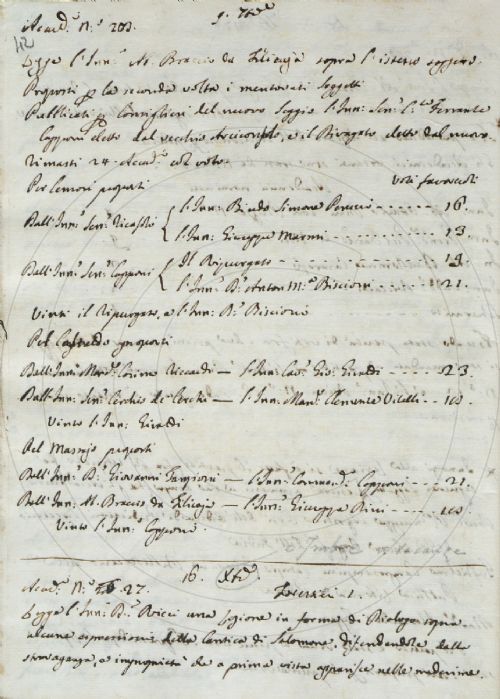 9. Xbre
Accad.i N.° 203.
112
Legge l'Inn.to M. Braccio da Filicaja sopra l'istesso soggetto.
Proposti p la seconda volta i mentovati soggetti
Pubblicati p Consiglieri del nuovo Seggio l'Inn: Sen.re Ferrante
Capponi eletto dal vecchio Arciconsolo, e il Rivagato eletto dal nuovo.
Rimasti 24. Accad.i col voto.
Per Censori proposti voti favorevoli
Dall'Inn.to Sen.re Ricasoli { l'Inn: Bindo Simone Peruzzi - - - - - - - 16.
l'Inn: Giuseppe Marmi - - - - - - - 13.
Dall'Inn.to Sen.re Capponi { Il Ripurgato - - - - - - - 19.
l'Inn.to D.r Anton M.a Biscioni - - - - - 21.
Vinti il Ripurgato, e l'Inn: D.r Biscioni
Pel Castaldo proposti
Dall'Inn.to March. Cosimo Riccardi — l'Inn: Cav.r Gio: Giraldi - - - - 23.
Dall'Inn: Sen.re Cerchio de' Cerchi — l'Inn: Mar. Clemente Vitelli - - - 10.
Vinto l'Inn: Giraldi
Pel Massajo proposti
Dall'Inn.to D.r Giovanni Targioni — l'Inn: Commend. Capponi - - - - 21.
Dall'Inn: M. Braccio da Filicaja — l'Inn.to Giuseppe Bini - - - - 10.
Vinto l'Inn.to Capponi.
16. Xbre.
Accad.i N.° 27. Esercizi 1.
Legge l'Inn.to D.r Ricci una Lezione in forma di Dialogo sopra
alcune espressioni della Cantica di Salomone difendendola dalla
stravaganza, e improprietà che a prima vista apparisce nelle medesime.